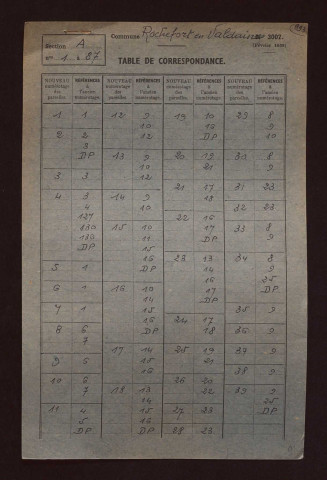 Commune Rochefort en Valdaine
3002.
(Février 1939)
Section A
nos 1 à 87
TABLE DE CORRESPONDANCE.
NOUVEAU numérotage des parcelles.
RÉFÉRENCES à l'ancien numérotage.
NOUVEAU numérotage des parcelles.
RÉFÉRENCES à l'ancien numérotage.
NOUVEAU numérotage des parcelles.
RÉFÉRENCES à l'ancien numérotage.
NOUVEAU numérotage des parcelles.
RÉFÉRENCES à l'ancien numérotage.
1 1
2 2
3
DP
3 3
4 3
4
127
130
130
DP
5 1
6 1
7 1
8 6
7
9 6
10 6
7
11 4
5
DP
12 9
10
12
13 9
10
12
14 9
10
15 10
11
15
16
DP
16 10
14
15
16
DP
17 14
15
16
18 13
14
15
16
DP
19 10
17
DP
20 19
21
21 17
18
22 16
17
DP
23 13
14
16
17
DP
24 17
18
25 19
21
26 20
22
27 23
28 23
29 8
9
10
30 8
9
31 23
32 23
33 8
9
34 8
9
25
DP
35 9
36 9
37 9
38 9
39 9
25
DP